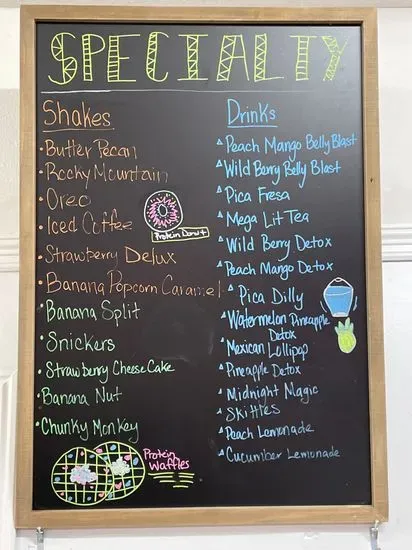 SPECIALTY
Shakes
• Butter Pecan
• Rocky Mountain
• Oreo
• Iced Coffee
• Strawberry Delux
• Banana Popcorn Caramel
• Banana Split
• Snickers
• Strawberry Cheese Cake
• Banana Nut
• Chunky Monkey
Protein Donut
Protein
Waffles
Drinks
Peach Mango Belly Blast
Wild Berry Belly Blast
Pica Fresa
Mega Lit Tea
Wild Berry Detox
Peach Mango Detox
Pica Dilly
Watermelon Pineapple
Detox
Mexican Lollipop
Pineapple Detox
Midnight Magic
Skittles
Peach Lemonade
Cucumber Lemonade